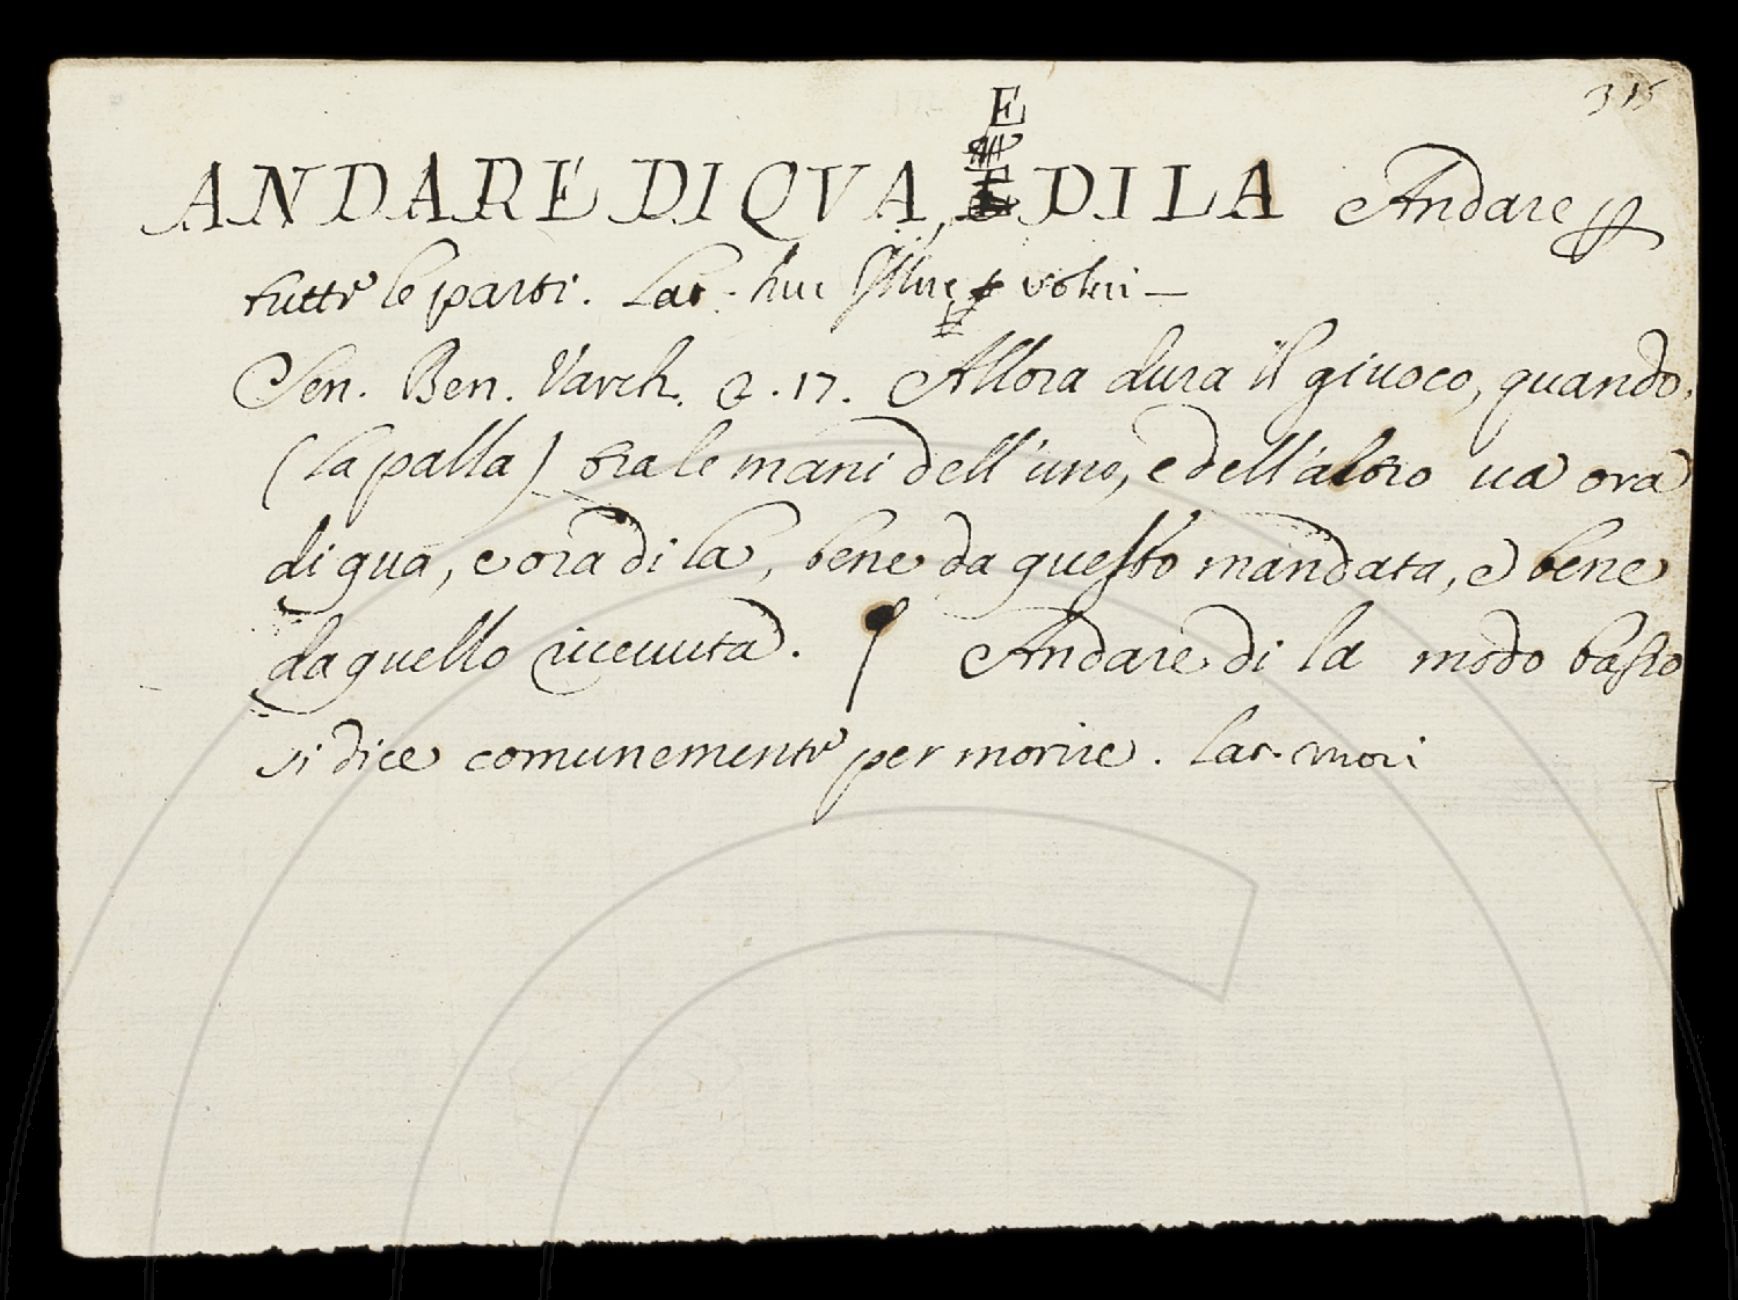 315
E
ANDARE DI QVA, E DI LA Andare p
tutte le parti. Lat. huc illuc volvi —
Sen. Ben. Varch. 2. 17. Allora dura il giuoco, quando
(la palla) tra le mani dell'uno, e dell'altro va ora
di qua, e ora di la, bene da questo mandata, e bene
da quello ricevuta. Andare di la modo basso
si dice comunemente per morire. Lat. mori